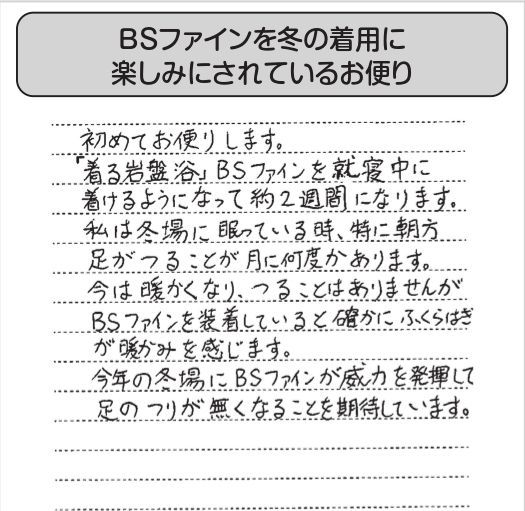 BSファインを冬の着用に
楽しみにされているお便り
初めてお便りします。
「着る岩盤浴」BSファインを就寝中に
着けるようになって約2週間になります。
私は冬場に眠っている時、特に朝方
足がつることが月に何度かあります。
今は暖かくなり、つることはありませんが
BSファインを装着していると確かにふくらはぎ
が暖かみを感じます。
今年の冬場にBSファインが威力を発揮して
足のつりが無くなることを期待しています。